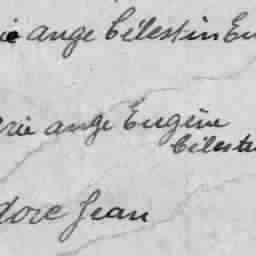 ie ange Célestin Eu
rie ange Eugène
Céleste
dore Jean